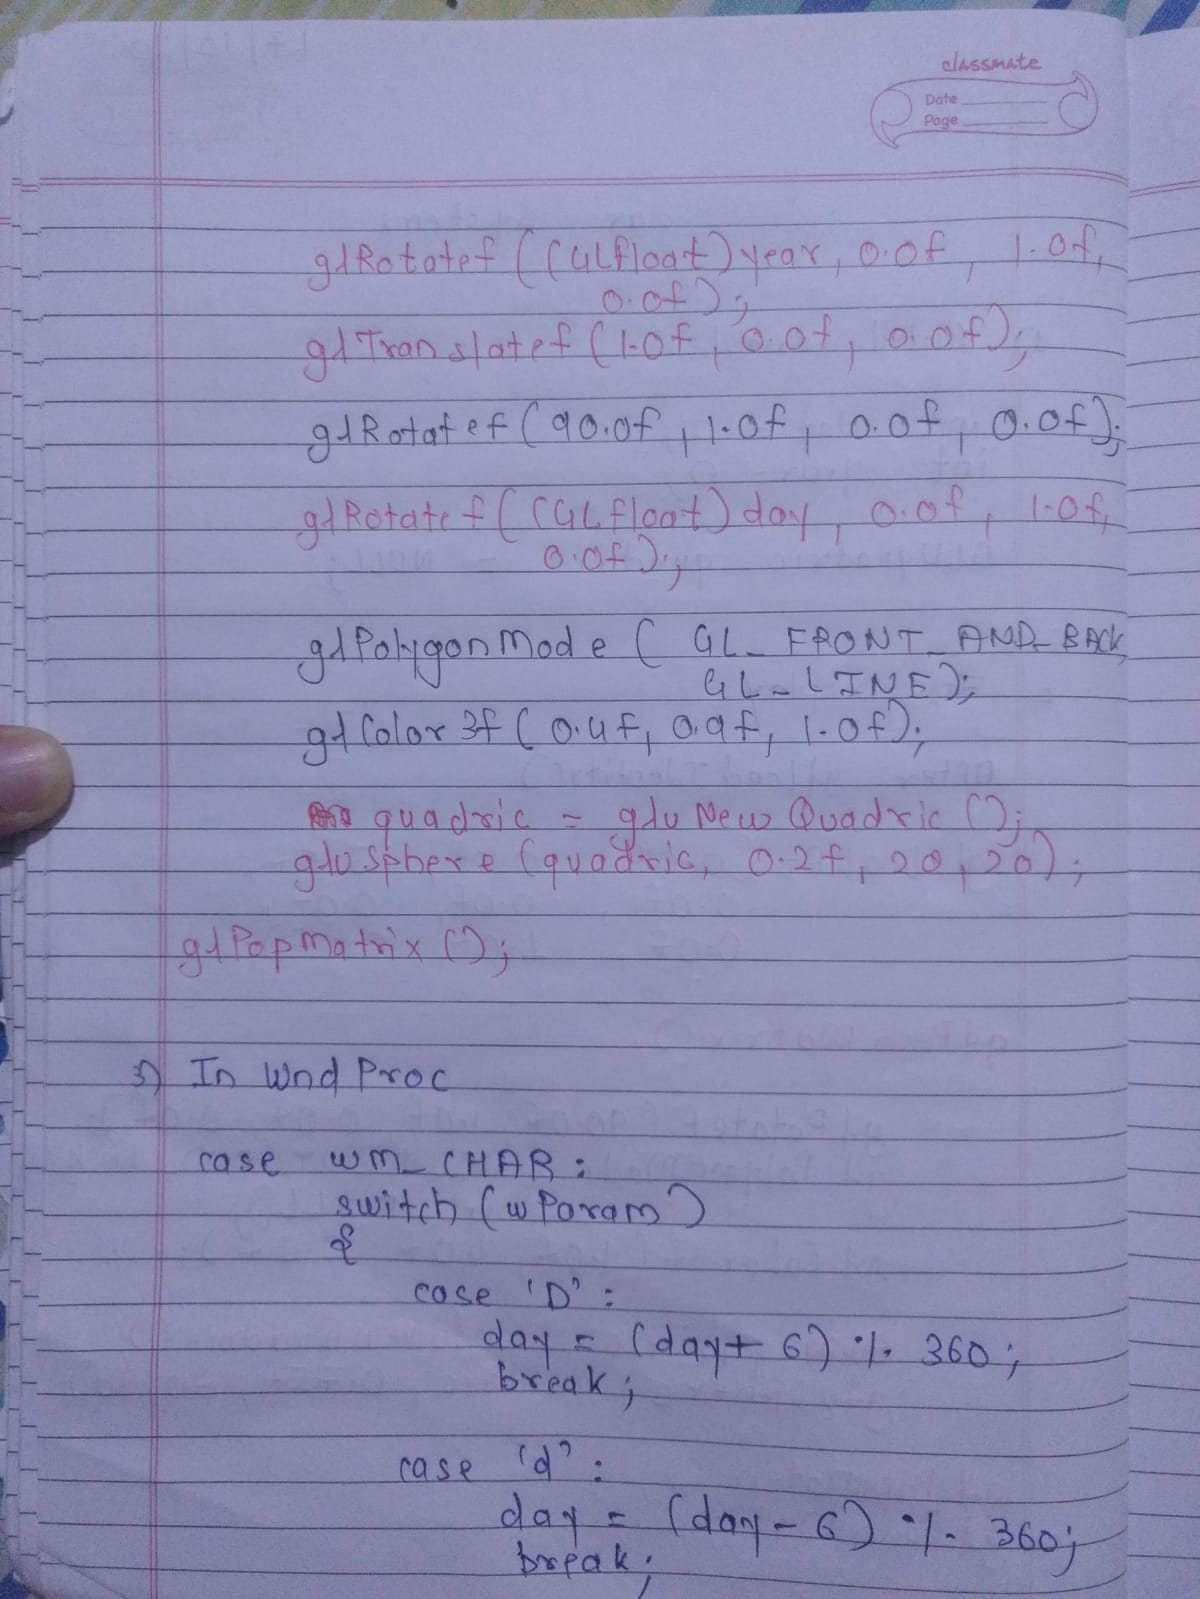 classmate
Date
Page
glRotatef((GLfloat)year, 0.0f, 1.0f,
0.0f);
glTranslatef(1.0f, 0.0f, 0.0f);
glRotatef(90.0f, 1.0f, 0.0f, 0.0f);
glRotatef((GLfloat)day, 0.0f, 1.0f,
0.0f);
glPolygonMode( GL_FRONT_AND_BACK,
GL_LINE);
glColor3f(0.4f, 0.9f, 1.0f);
quadric = gluNewQuadric();
gluSphere(quadric, 0.2f, 20, 20);
glPopMatrix();
3) In WndProc
case WM_CHAR:
switch(wParam)
{
case 'D':
day = (day+6) % 360;
break;
case 'd':
day = (day-6) % 360;
break;